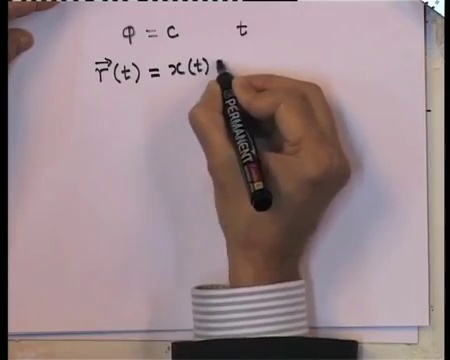 φ = c t
r⃗(t) = x(t)
PERMANENT